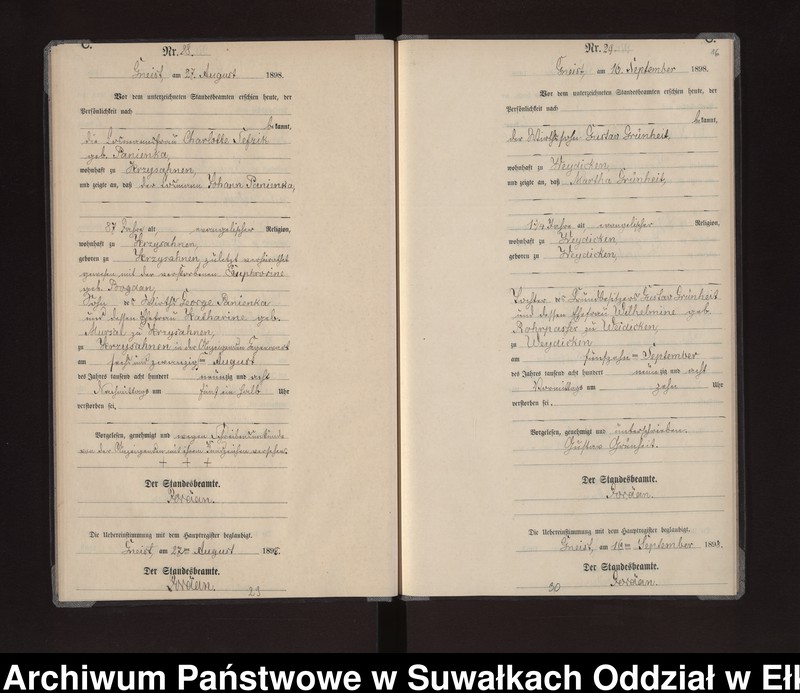 C.
Nr. 28
Gneist, am 27. August 1898.
Vor dem unterzeichneten Standesbeamten erschien heute, der
Persönlichkeit nach
bekannt,
die Losmannfrau Charlotte
geb. Panienka
wohnhaft zu Krzysahnen,
und zeigte an, daß der Losmann Johann Panienka,
87 Jahre alt evangelischer Religion,
wohnhaft zu Krzysahnen,
geboren zu Krzysahnen, zuletzt verheirathet
gewesen mit der verstorbenen
geb. Bogdan,
Sohn des Wirths George Panienka
und dessen Ehefrau Katharine geb.
zu Krzysahnen,
zu Krzysahnen in der Anzeigenden Gegenwart
am sechs und zwanzigsten August
des Jahres tausend acht hundert neunzig und acht
Nachmittags um fünf ein halb Uhr
verstorben sei.
Vorgelesen, genehmigt und wegen Schreibensunkunde
von der Anzeigenden mit ihrem Handzeichen versehen.
+ + +
Der Standesbeamte.
Jordan.
Die Uebereinstimmung mit dem Hauptregister beglaubigt.
Gneist, am 27ten August 1898.
Der Standesbeamte.
Jordan.
29
C.
Nr. 29
16
Gneist, am 16. September 1898.
Vor dem unterzeichneten Standesbeamten erschien heute, der
Persönlichkeit nach
bekannt,
der Wirthssohn Gustav Grünheit,
wohnhaft zu Weydicken,
und zeigte an, daß Martha Grünheit,
1 3/4 Jahre alt evangelischer Religion,
wohnhaft zu Weydicken,
geboren zu Weydicken,
Tochter des Grundbesitzers Gustav Grünheit
und dessen Ehefrau Wilhelmine geb.
zu Weidicken,
zu Weydicken
am fünfzehnten September
des Jahres tausend acht hundert neunzig und acht
Vormittags um zehn Uhr
verstorben sei.
Vorgelesen, genehmigt und unterschrieben.
Gustav Grünheit.
Der Standesbeamte.
Jordan.
Die Uebereinstimmung mit dem Hauptregister beglaubigt.
Gneist, am 16ten September 1898.
Der Standesbeamte.
Jordan.
30
Archiwum Państwowe w Suwałkach Oddział w Ełk